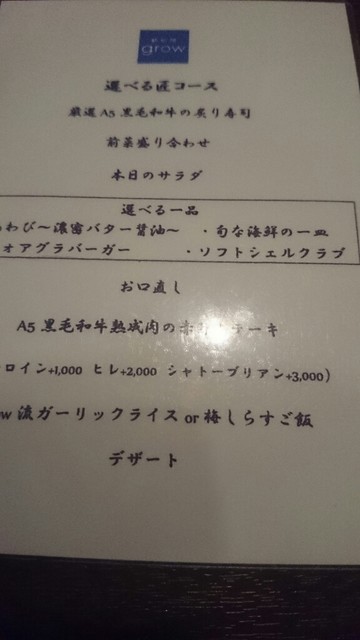 grow
選べる匠コース
厳選A5黒毛和牛の炙り寿司
前菜盛り合わせ
本日のサラダ
選べる一品
わび～濃密バター醤油～ ・旬な海鮮の一皿
ォアグラバーガー ・ソフトシェルクラブ
お口直し
A5黒毛和牛熟成肉の
ロイン+1,000 ヒレ+2,000 シャトーブリアン+3,000)
w流ガーリックライス or 梅しらすご飯
デザート